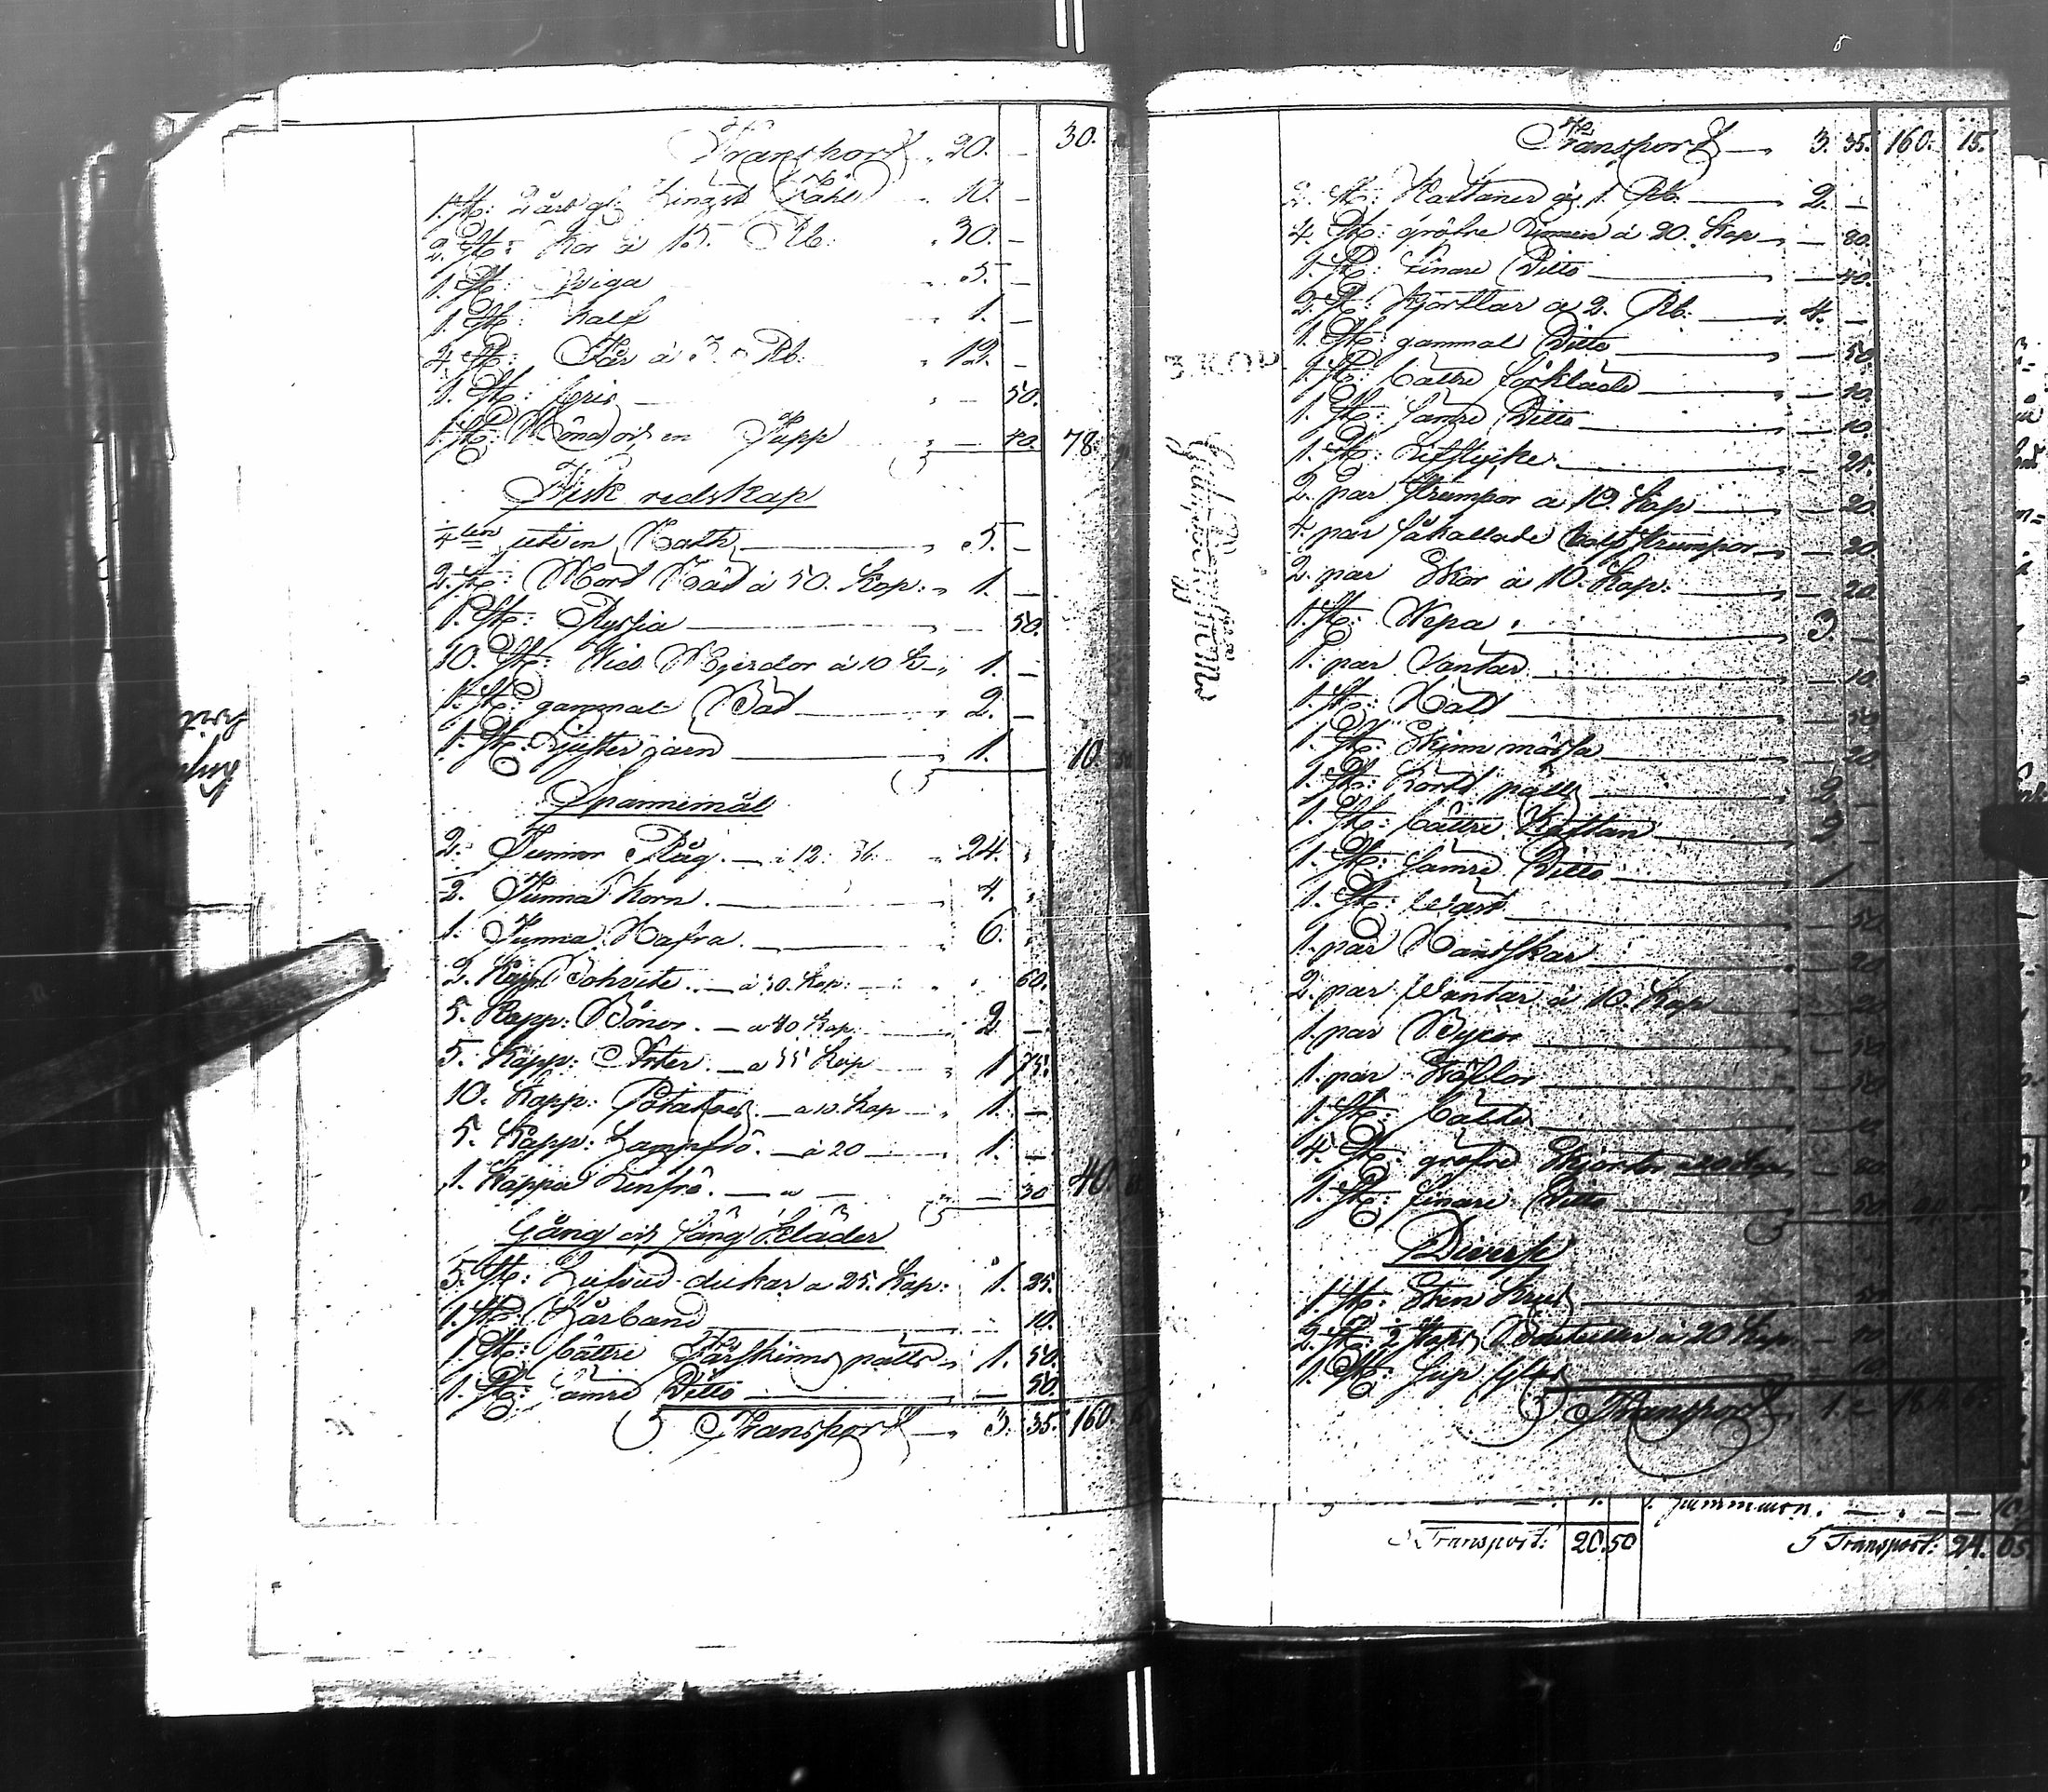 Transport „ 20. — 30.
1. St: 2 års gl: Hingst Fåhle „ 10. —
2. St: Kor à 15. Rb: „ 30. —
1. St: Qviga „ 5. —
1. St: Kalf „ 1. —
4. St: Får à 3. Rb: „ 12. —
1. St: Gris „ — 50.
1. St: Höna och en Tupp „ — 40. 78.
Fisk redskap
4 uti en Noth „ 5. —
2. St: Mört Nät à 50. Kop: „ 1. —
1. St: Ryssia — 50.
10. St: Vid Mjerdor à 10 K „ 1. —
1. St: gammal Båt „ 2. —
1. St: Ljusterjärn „ 1. 10
Spannemål
2. Tunnor Råg. — à 12: „ 24.
2. Tunna Korn. 4.
1. Tunna Hafra. 6.
2. Kapp: Bohvete. — à 30. Kop: 60.
5. Kapp: Bönor. — a 40 Kop: 2 —
5. Kapp: Ärter. — a 35 Kop 1 75.
10. Kapp: Potates — a 10. Kop „ 1. —
5. Kapp: Hampfrö. — à 20 1. —
1. Kappa Linfrö. — „ — — 30 40.
Gång och Säng Kläder
5. St: Hufvud dukar a 25. Kop: 1. 25.
1. St: Hårband 10.
1. St: bättre Fårskinns pälts „ 1. 50.
1. St: sämre Ditto — 50.
Transport „ 3. 35. 160.
Transport „ 3. 35. 160. 15.
2. St: Kaftaner à 1. Rb. 2. —
4. St: gröfre Linnen à 20. Kop — 80.
1. St: finare Ditto — 40.
2. St: Kjortlar a 2. Rb. 4. —
1. St: gammal Ditto — 50
1. St: bättre förkläde — 20.
1. St: sämre Ditto — 10.
1. St: Lifstycke — 25.
2. par Strumpor a 10. Kop — 20
4. par såkallade halfstrumpor — 20.
2. par Skor à 10. Kop: — 20.
1. St: Vepa. 3 —
1. par Vantar — 10.
1. St: Hatt — 50
1. St: Skinn mössa — 20.
1. St: Kort pälts 2 —
1. St: bättre Kaftan 3 —
1. St: sämre Ditto 1
1. St: Väst 50
1. par Handskar — 20
2. par Vantar à 10. Kop — 20
1. par Byxor — 50
1. par Stöflor — 50
1. St: bälte
4. St: gröfre Skjortor a 20 Kop — 80
1. St: finare Ditto — 50.
Diverse
1. St: Sten Krus
2. St: Bouteiller à 20 Kop — 40
1. St: Sup Glas
Transport
3 KOP
Transport: 20. 50
Transport: 24. 05